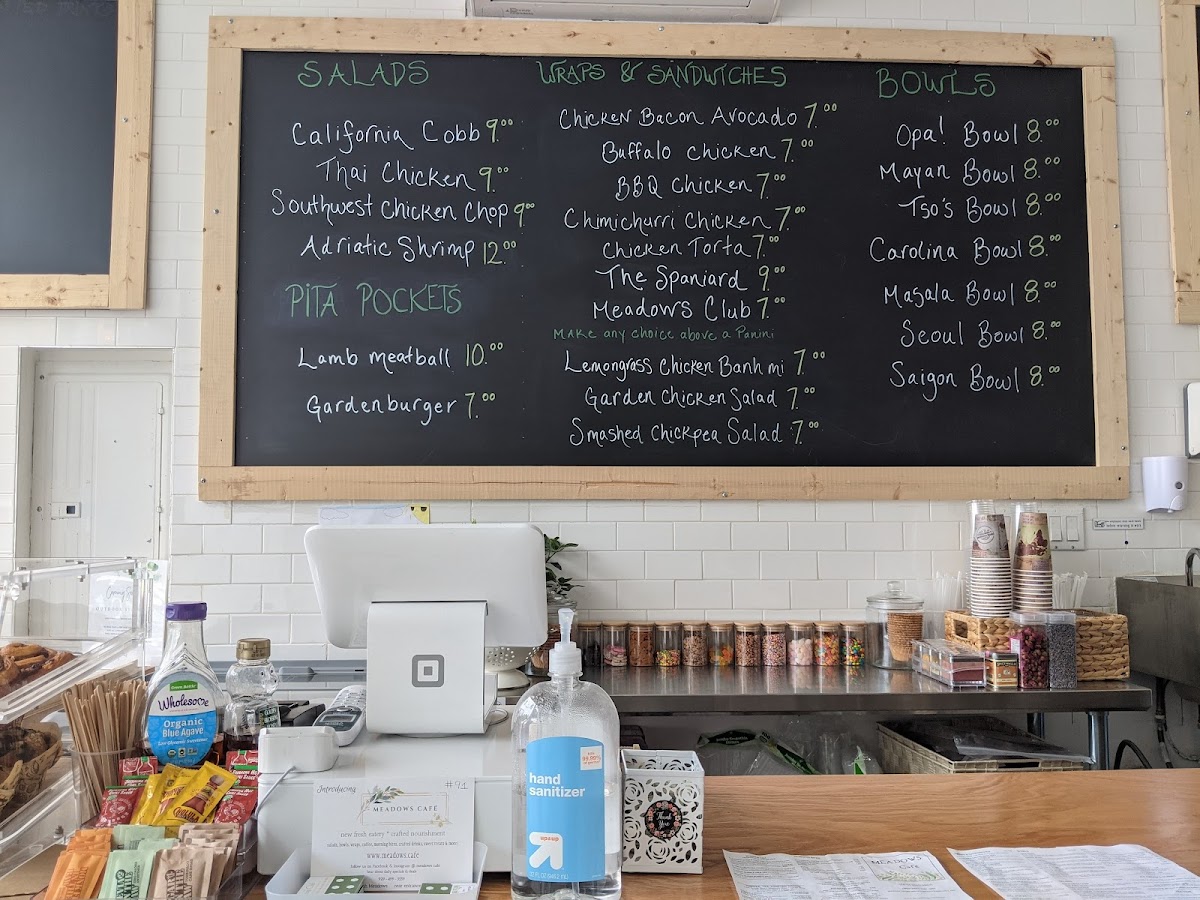 SALADS
California Cobb 9.00
Thai Chicken 9.00
Southwest Chicken Chop 9.00
Adriatic Shrimp 12.00
PITA POCKETS
Lamb meatball 10.00
Gardenburger 7.00
WRAPS & SANDWICHES
Chicken Bacon Avocado 7.00
Buffalo Chicken 7.00
BBQ Chicken 7.00
Chimichurri Chicken 7.00
Chicken Torta 7.00
The Spaniard 9.00
Meadows Club 7.00
Make any choice above a Panini
Lemongrass Chicken Banh mi 7.00
Garden Chicken Salad 7.00
Smashed Chickpea Salad 7.00
BOWLS
Opa! Bowl 8.00
Mayan Bowl 8.00
Tso's Bowl 8.00
Carolina Bowl 8.00
Masala Bowl 8.00
Seoul Bowl 8.00
Saigon Bowl 8.00
Wholesome
Organic
Blue Agave
Introducing
#91
MEADOWS CAFE
new fresh eatery * crafted nourishment
www.meadows.cafe
hand
sanitizer
up&up
99.99%
Thank
You
MEADOWS